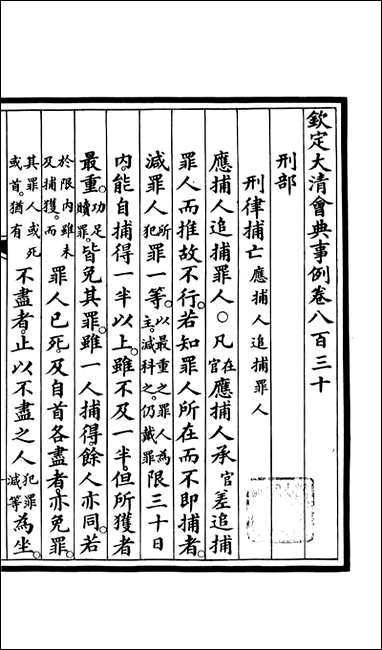 欽定大清會典事例卷八百三十
刑部
刑律捕亡應捕人追捕罪人
應捕人追捕罪人○凡在官應捕人承官差追捕
罪人而推故不行。若知罪人所在而不即捕者。
減罪人所犯罪一等。以最重之罪人為主。減科之。仍戴罪限三十日
內。能自捕得一半以上。雖不及一半。但所獲者
最重。功足贖罪。皆免其罪。雖一人捕得。餘人亦同。若
於限內雖未及捕獲。而罪人已死。及自首各盡者。亦免罪。
其罪人或死或首。猶有不盡者。止以不盡之人犯罪減等為坐。